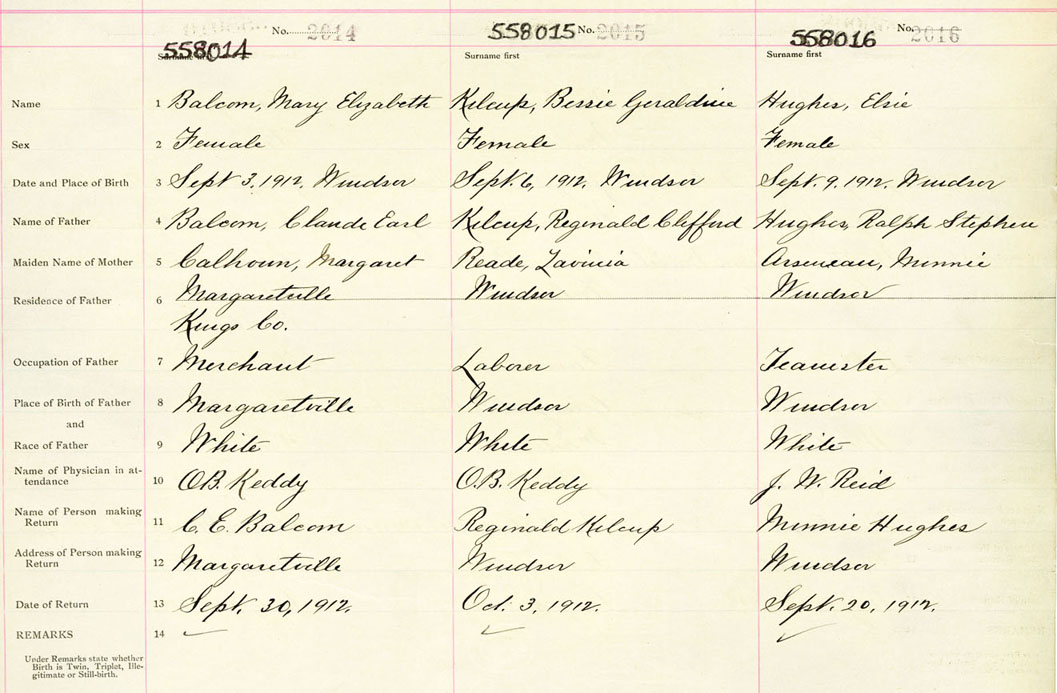 No. 2014 558015 No. 2015 No. 2016
558014 558016
Surname first Surname first Surname first
Name 1 Balcom, Mary Elizabeth Kilcup, Bessie Geraldine Hughes, Elsie
Sex 2 Female Female Female
Date and Place of Birth 3 Sept 3, 1912, Windsor Sept. 6, 1912, Windsor Sept. 9, 1912, Windsor
Name of Father 4 Balcom, Claude Earl Kilcup, Reginald Clifford Hughes, Ralph Stephen
Maiden Name of Mother 5 Calhoun, Margaret Reade, Lavinia Arseneau, Minnie
Residence of Father 6 Margaretville Windsor Windsor
Kings Co.
Occupation of Father 7 Merchant Laborer Teamster
Place of Birth of Father 8 Margaretville Windsor Windsor
and
Race of Father 9 White White White
Name of Physician in at-
tendance 10 O.B. Keddy O.B. Keddy J. W. Reid
Name of Person making
Return 11 C. E. Balcom Reginald Kilcup Minnie Hughes
Address of Person making
Return 12 Margaretville Windsor Windsor
Date of Return 13 Sept. 30, 1912. Oct. 3, 1912. Sept. 20, 1912.
REMARKS 14
Under Remarks state whether
Birth is Twin, Triplet, Ille-
gitimate or Still-birth.